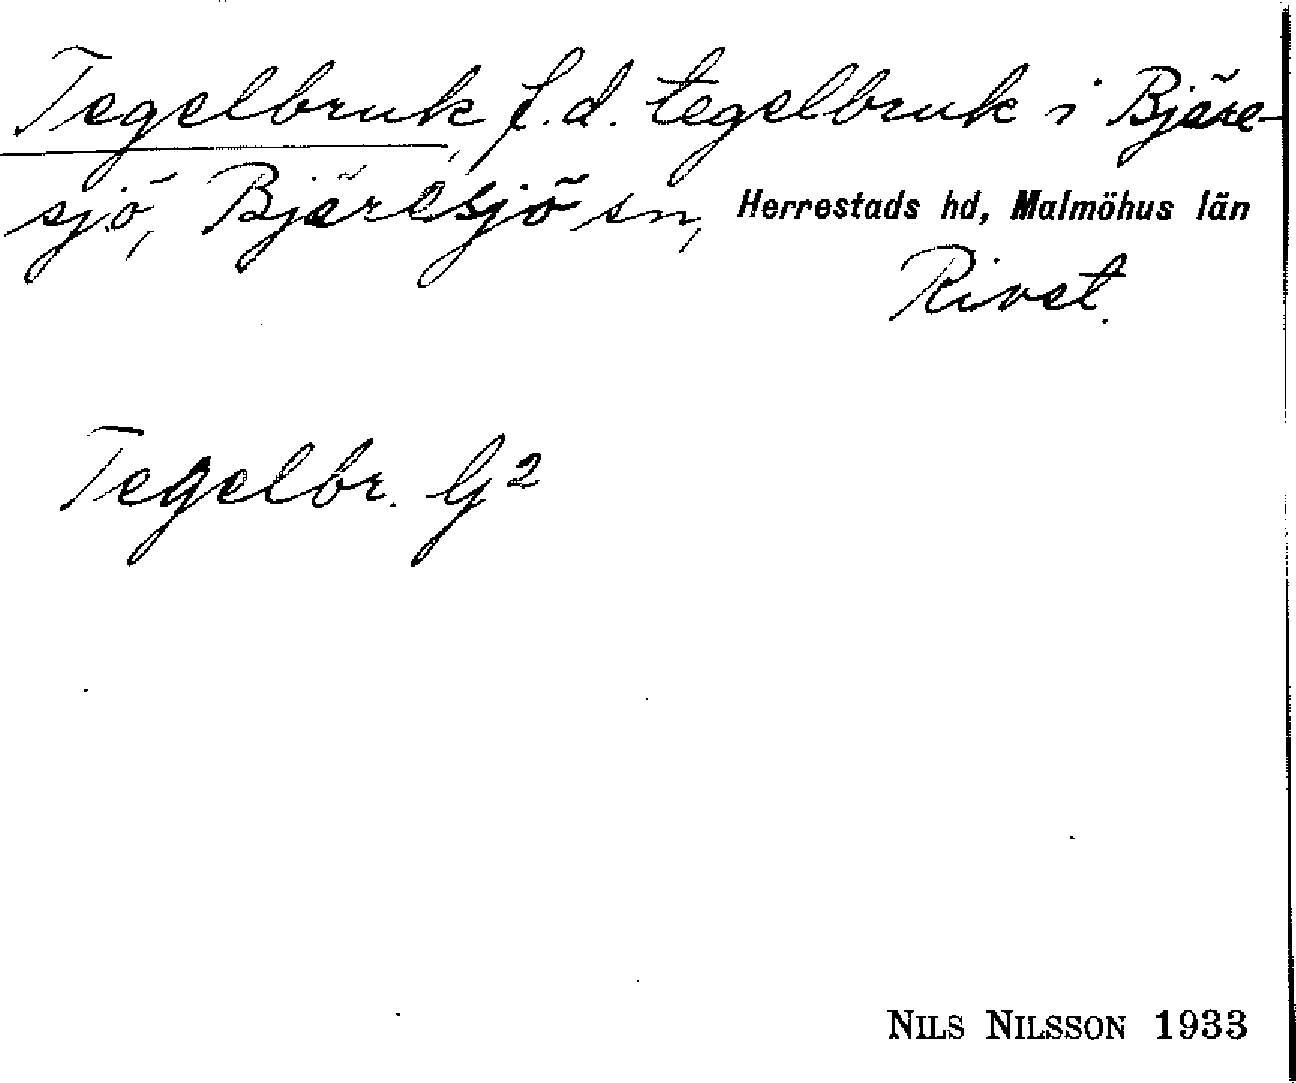 Tegelbruk, f.d. tegelbruk i Bjäre-
sjö, Bjäresjö sn, Herrestads hd, Malmöhus län
Rivet.
Tegelbr. G2
NILS NILSSON 1933